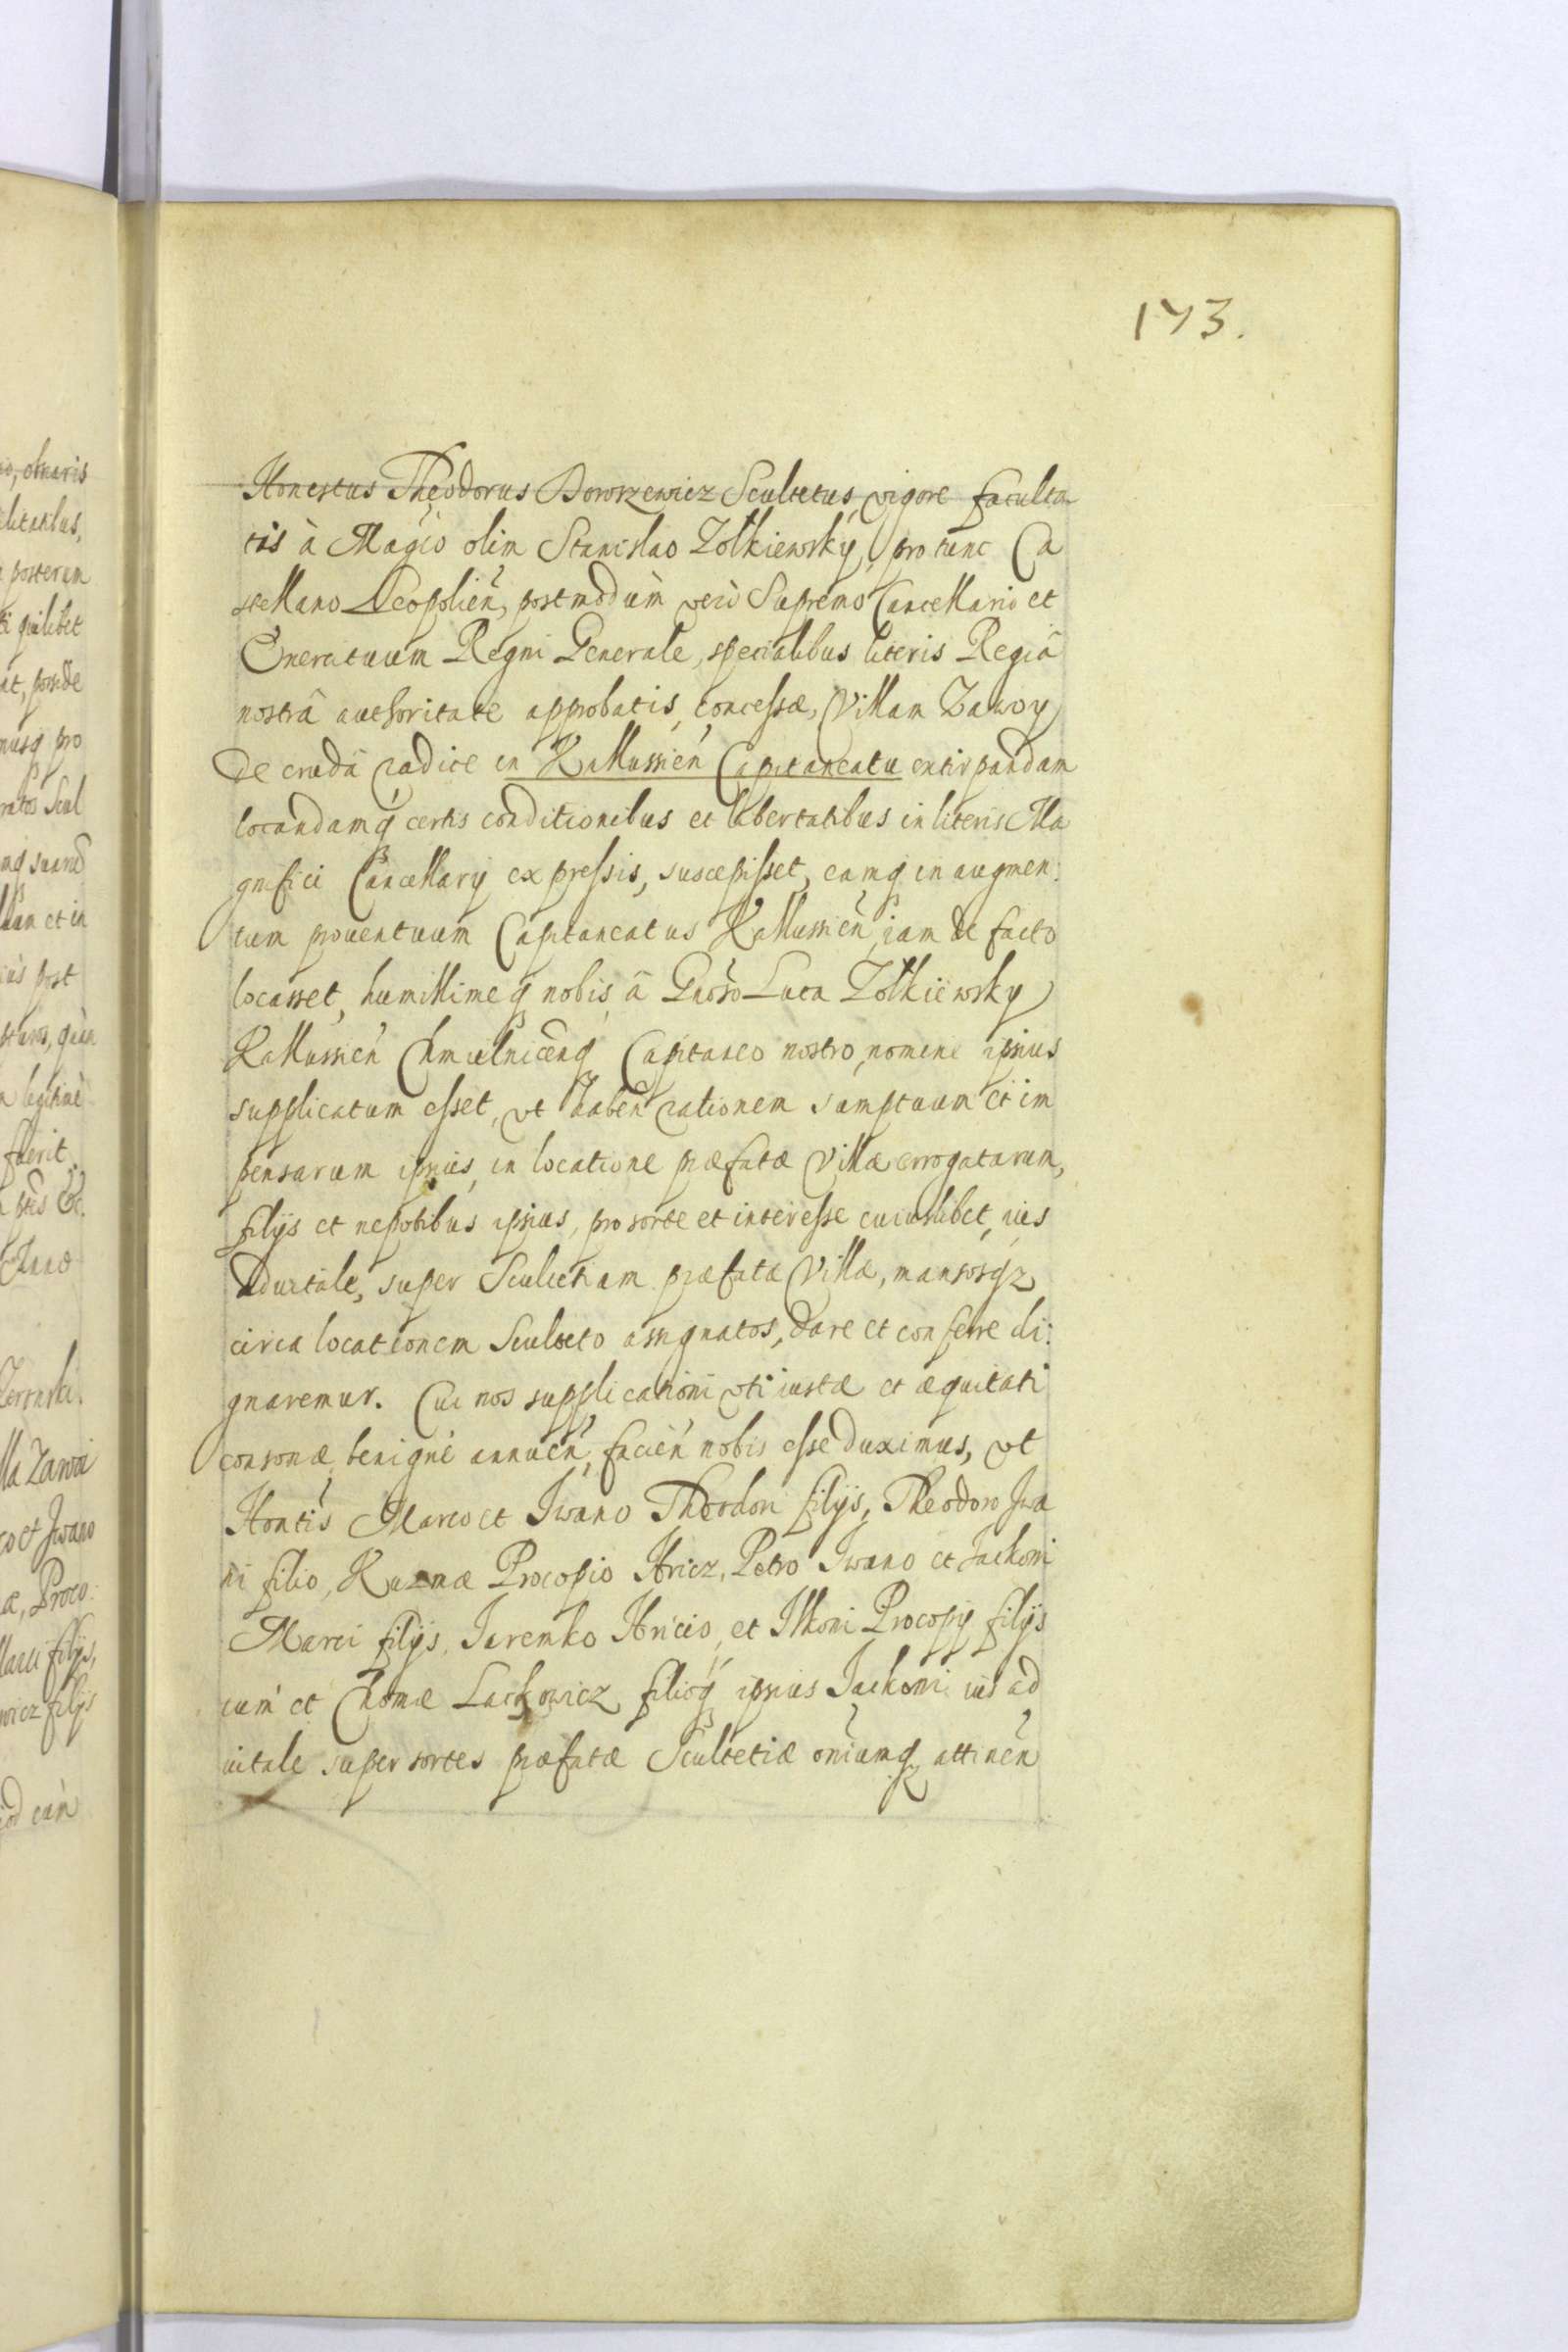 173.
Honestus Theodorus Boroszewicz Scultetus, vigore faculta
tis à Magco olim Stanislao Zolkiewsky, pro tunc Ca
stellano Leopolien, postmodùm verò Supremo Cancellario et
Exercituum Regni Generale, specialibus literis Regiâ
nostrâ authoritate approbatis, concessæ, Villam Zawoy
de crudâ radice in Kallussien Capitaneatu extirpandam
locandamq certis conditionibus et libertatibus in literis Ma
gnifici Cancellarij expressis, suscepisset, eamq in augmen:
tum prouentuum Capitaneatus Kallussien iam de facto
locasset, humillimeq nobis â Gnoso Luca Zolkiewsky
Kallussien Chmielnicenq Capitaneo nostro, nomine ipsius
supplicatum esset, vt haben rationem sumptuum et im
pensarum ipsius, in locatione præfatæ Villæ errogatarum,
filijs et nepotibus ipsius, pro sorte et interesse cuiuslibet, ius
aduitale, super Scultetiam præfatæ Villæ, mansosqz
circa locationem Sculteto assignatos, dare et conferre di:
gnaremur. Cui nos supplicationi vti iustæ et æquitati
consonæ benignè annuen, facien nobis esse duximus, vt
Hontis Marco et Iwano Theodori filijs, Theodoro Iwa
ni filio, Kuzmæ Procopio Hricz, Petro Iwano et Iackoni
Marci filijs, Iaremko Hricio, et Ilkoni Procopij filijs
cum et Chomæ Lackowicz filioq ipsius Iackoni ius ad
uitale super sortes præfatæ Scultetiæ omiumq attinen
o, olnaris
ilitatibus,
posteram
quilibet
at, poside
musq pro
ratos Scul
mq suaru
et in
ius post
legitimè
fuerit
Anno
lla Zawoi
co et Iwano
æ, Proco:
Marci filijs,
wicz filijs
od cum